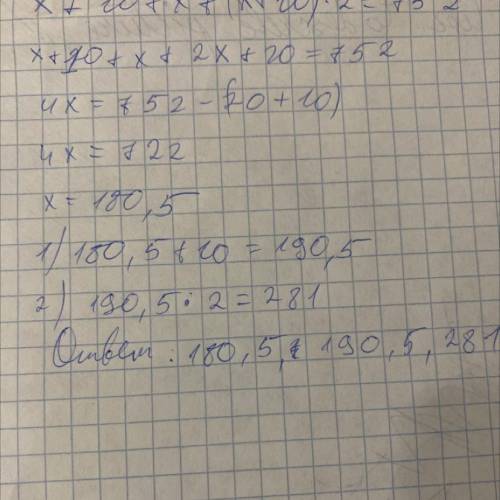 x + 10 + x + (x + 10) · 2 = 752
x + 10 + x + 2x + 20 = 752
4x = 752 - (20 + 10)
4x = 722
x = 180,5
1) 180,5 + 10 = 190,5
2) 190,5 · 2 = 281
Ответ: 180,5, 190,5, 281